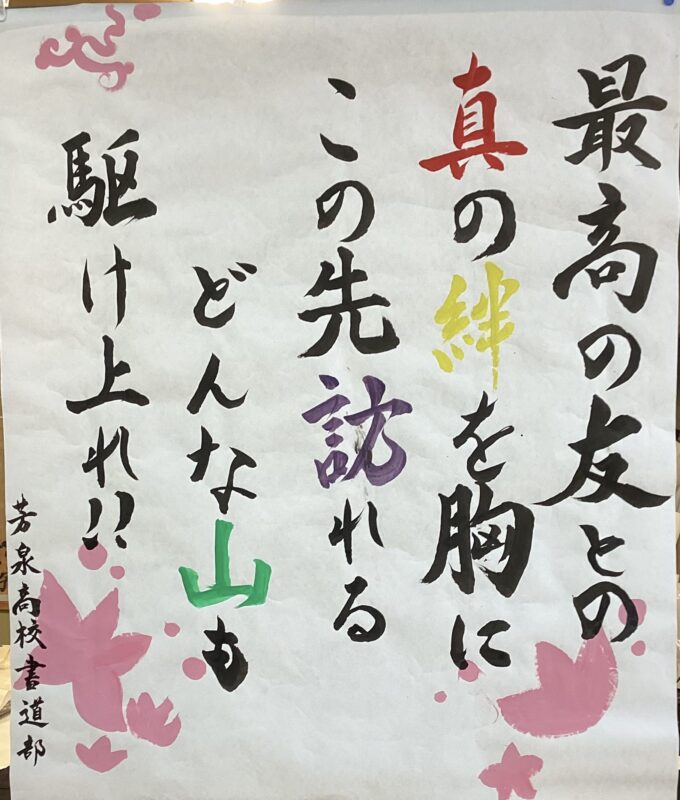 最高の友との
真の絆を胸に
この先訪れる
どんな山も
駆け上れ!!
芳泉高校書道部